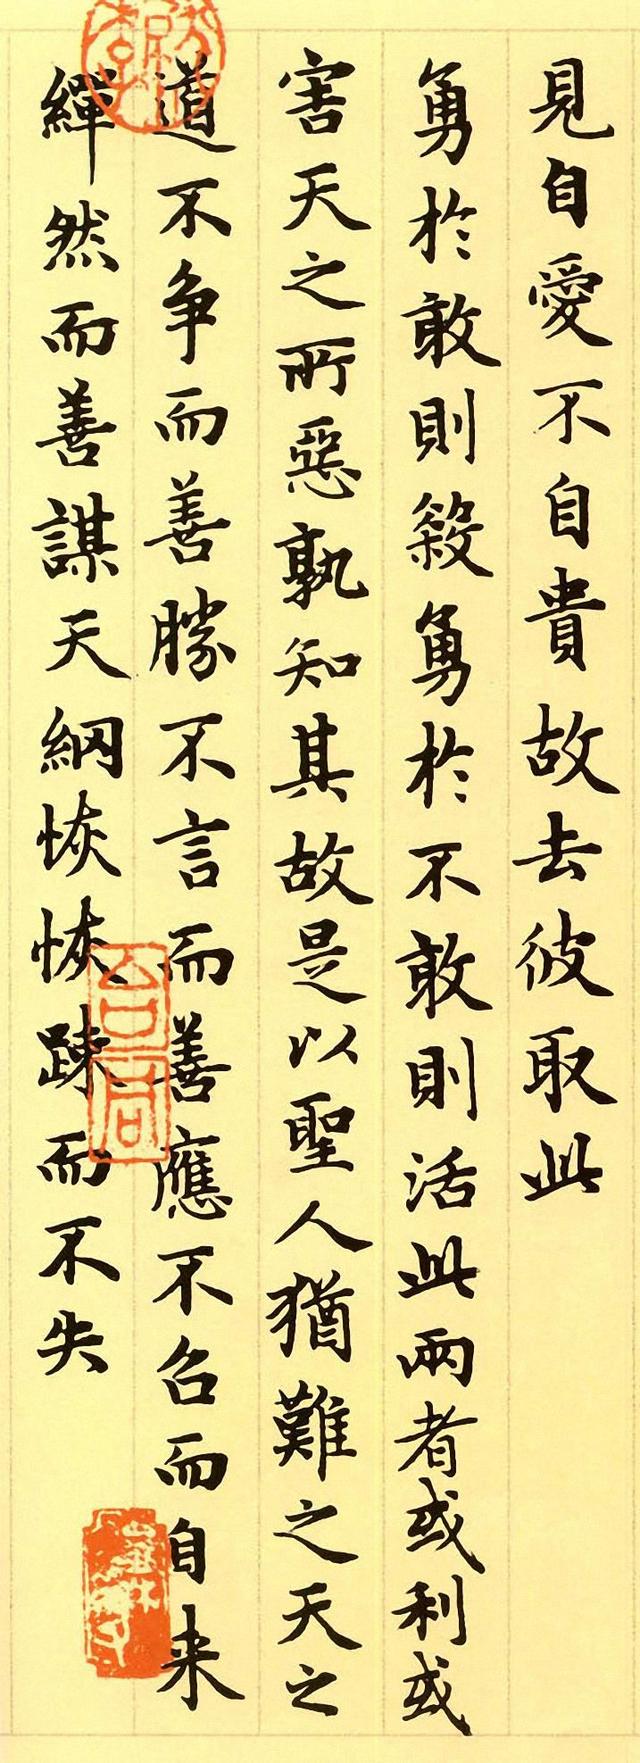 見自愛不自貴故去彼取此
勇於敢則殺勇於不敢則活此兩者或利或
害天之所惡孰知其故是以聖人猶難之天之
道不争而善勝不言而善應不召而自来
繟然而善謀天綱恢恢踈而不失